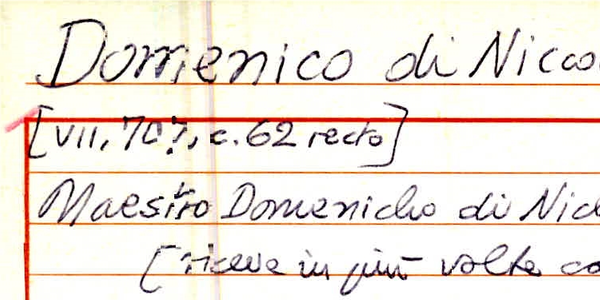 Domenico di Nicco
[VII, 70?, c. 62 recto]
Maestro Domenicho di Nich
[riceve in più volte co